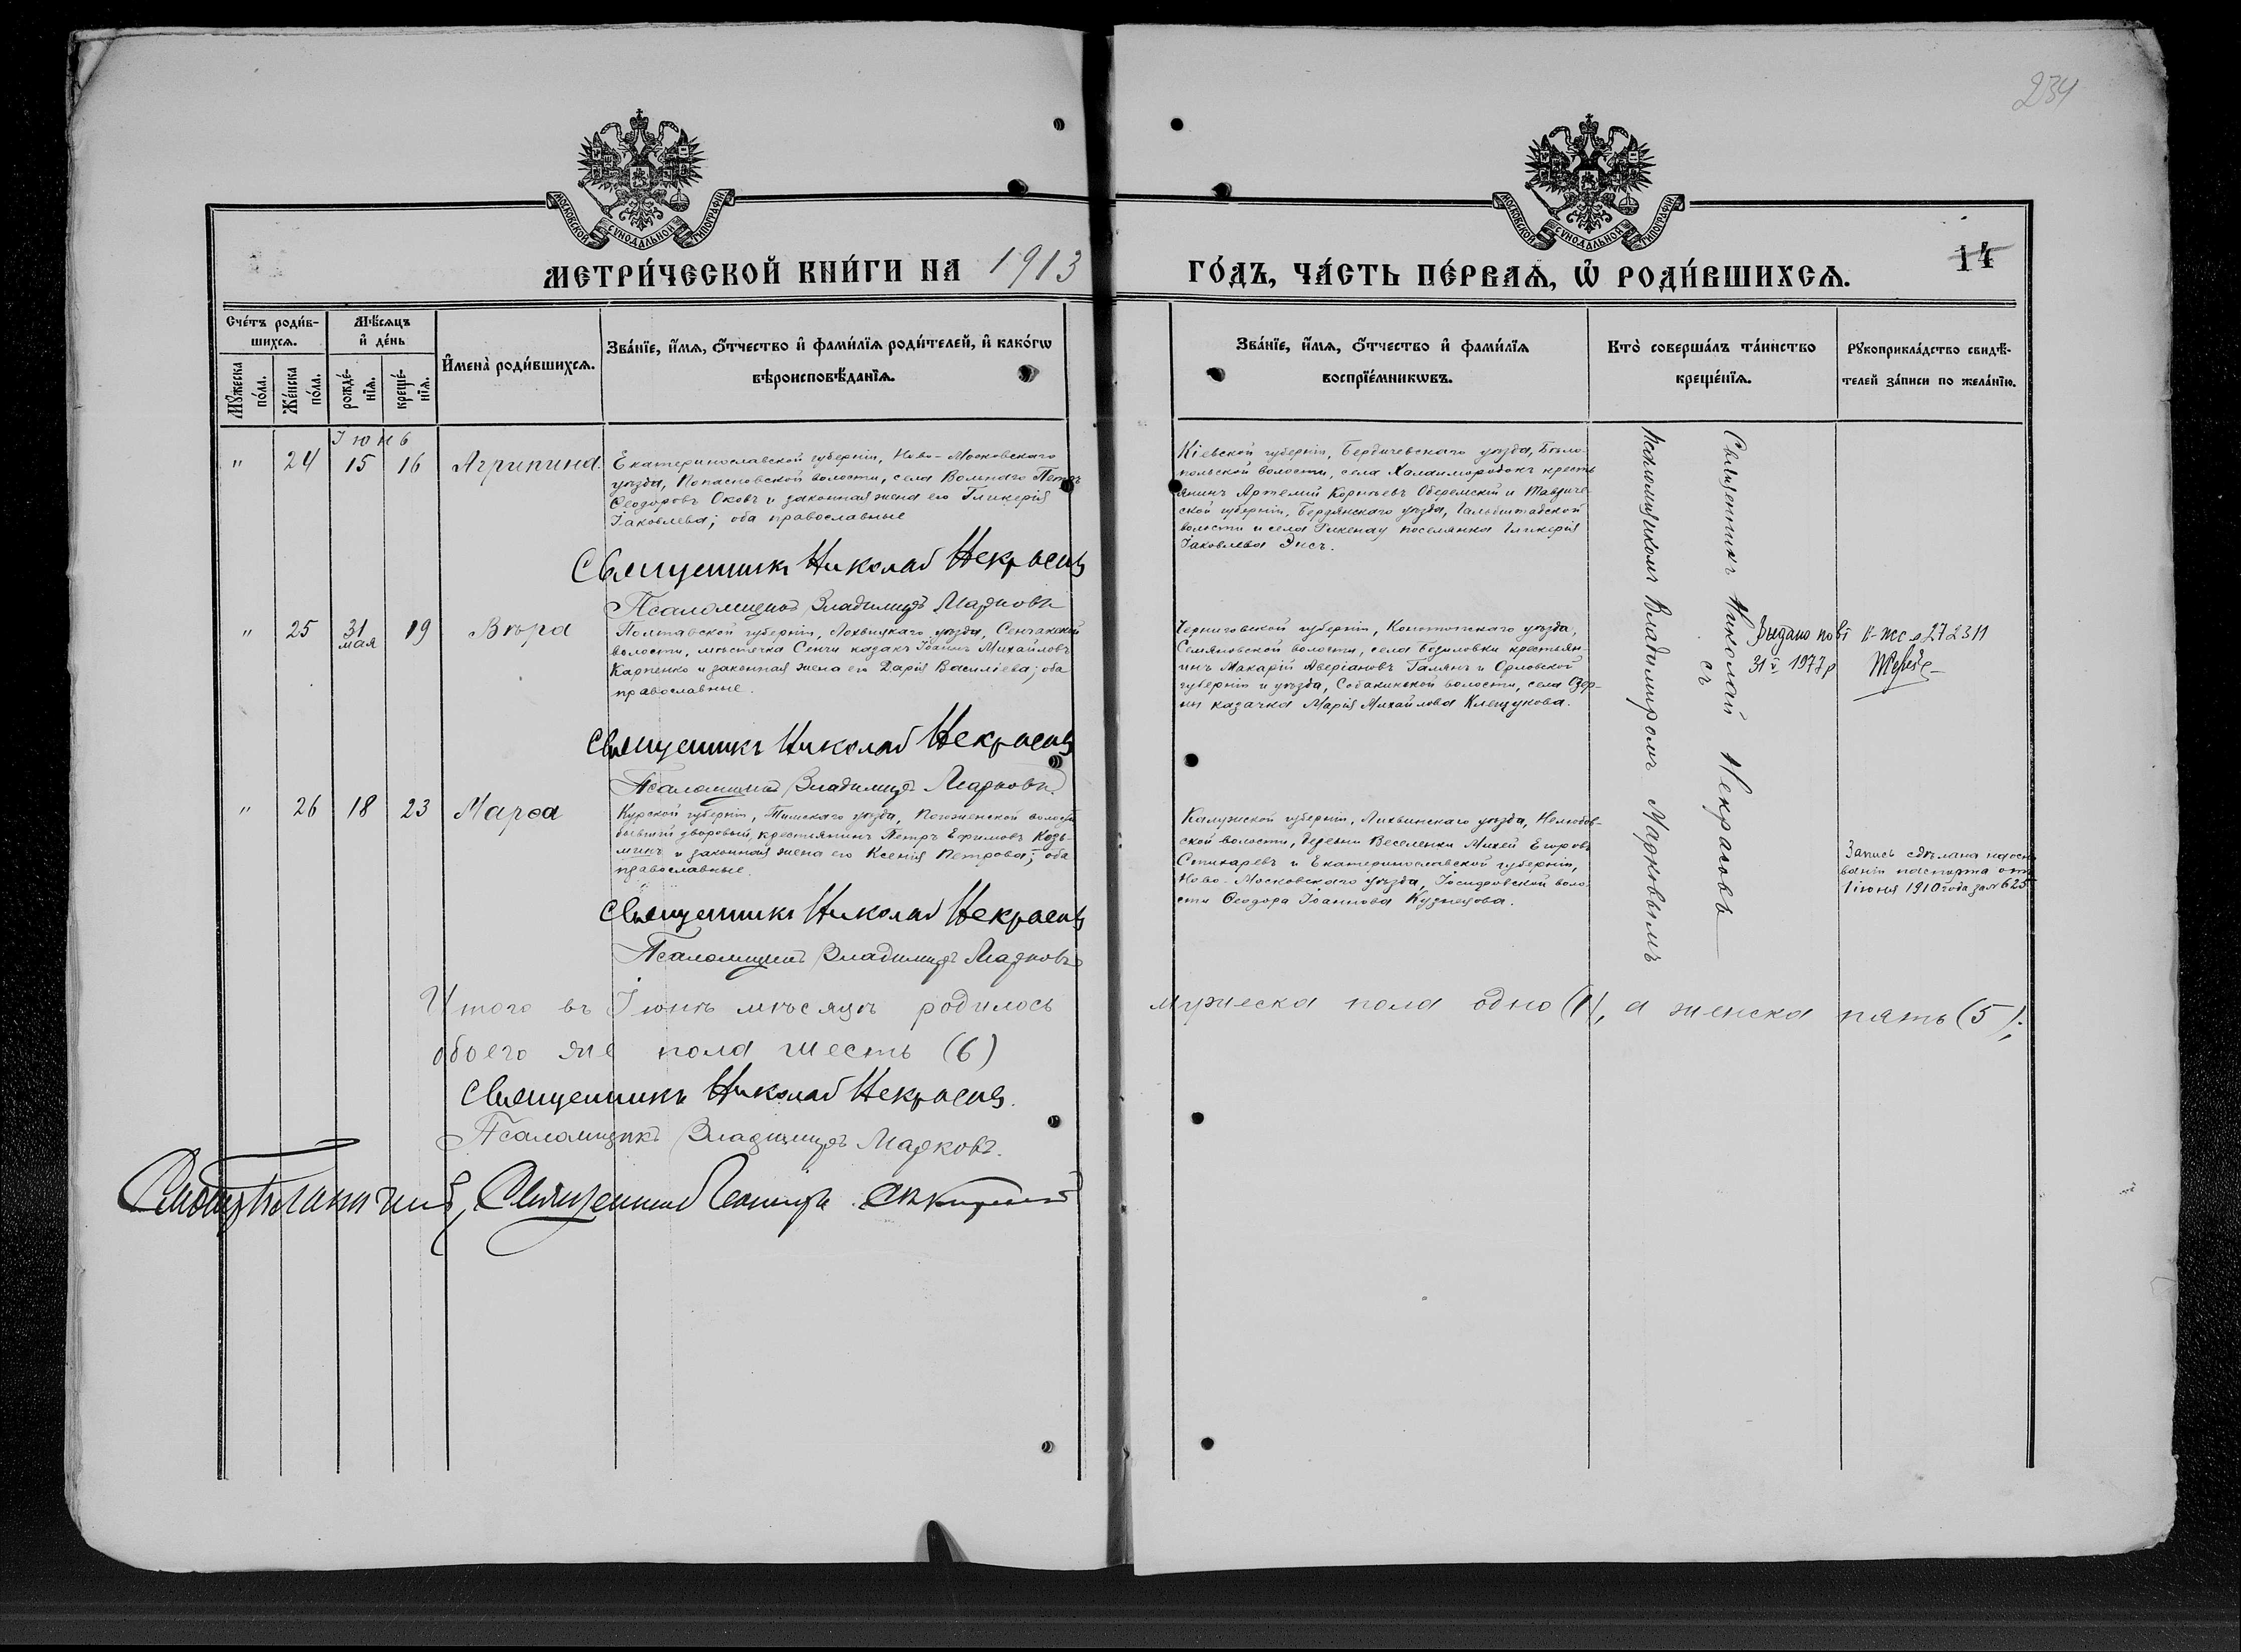 234
МОСКОВСКОЙ СѴНОДАЛЬНОЙ ТИПОГРАФІИ
МОСКОВСКОЙ СѴНОДАЛЬНОЙ ТИПОГРАФІИ
МЕТРИ́ЧЕСКОЙ КНИ́ГИ НА 1913
ГО́ДЪ, ЧА́СТЬ ПЕ́РВАѦ, Ѡ҆ РОДИ́ВШИХСѦ.
14
Сче́тъ роди́в-
шихсѧ.
Мѣ́сѧцъ
и҆ де́нь
Му́жеска
по́ла.
Же́нска
по́ла.
рожде́-
нїѧ.
креще́-
нїѧ.
И҆мена̀ роди́вшихсѧ.
Зва́нїе, и҆́мѧ, ѻ҆́тчество и҆ фами́лїѧ роди́телей, и҆ како́гѡ
вѣроисповѣ́данїѧ.
Зва́нїе, и҆́мѧ, ѻ҆́тчество и҆ фами́лїѧ
воспрїе́мникѡвъ.
Кто̀ соверша́лъ та́инство
креще́нїѧ.
Рукоприкла́дство свидѣ́-
телей за́писи по жела́нїю.
Іюнь
" 24 15 16 Агрипина
Екатеринославской губерніи, Ново-Московскаго
уѣзда, Попасновской волости, села Вольнаго Петръ
Ѳеодоровъ Оковъ и законная жена его Гликерія
Іаковлева; оба православные
Священникъ Николай Некрасовъ
Псаломщикъ Владимиръ Марковъ
Кіевской губерніи, Бердичевскаго уѣзда, Бѣло-
польской волости, села Халаимгородокъ кресть
янинъ Артемій Корнѣевъ Оберемскій и Тавриче-
ской губерніи, Бердянскаго уѣзда, Гальбштадской
волости и села Рикенау поселянка Гликерія
Іаковлева Энсъ.
" 25 31 мая 19 Вѣра
Полтавской губерніи, Лохвицкаго уѣзда, Сенчанской
волости, мѣстечка Сенчи казакъ Іоаннъ Михайловъ
Карпенко и законная жена его Дарія Василіева; оба
православные.
Священникъ Николай Некрасовъ
Псаломщикъ Владимиръ Марковъ.
Черниговской губерніи, Конотопскаго уѣзда,
Семяновской волости, села Гориловки крестьян-
инъ Макарій Аверіановъ Галянъ и Орловской
губерніи и уѣзда, Собакинской волости, села Озер-
ни казачка Марія Михайлова Клецунова.
31 V 1973 р
" 26 18 23 Марѳа
Курской губерніи, Тимскаго уѣзда, Погоженской волости
бывшій дворовый, крестьянинъ Петръ Ефимовъ Козь-
минъ и законная жена его Ксенія Петрова; оба
православные.
Священникъ Николай Некрасовъ
Псаломщикъ Владимиръ Марковъ
Калужской губерніи, Лихвинскаго уѣзда, Нелюбов-
ской волости, деревни Веселенки Михей Егоровъ
Стихаревъ и Екатеринославской губерніи,
Ново-Московскаго уѣзда, воло-
сти Ѳеодора Іоаннова Кузнецова.
Священникъ Николай Некрасовъ
съ
псаломщикомъ Владимиромъ Марковымъ
Запись сдѣлана на осно
ваніи паспорта отъ
1 іюня 1910 года за №625
Итого въ Іюнѣ мѣсяцѣ родилось
мужеска пола одно (1), а женска пять (5),
обоего же пола шесть (6)
Священникъ Николай Некрасовъ.
Псаломщикъ Владимиръ Марковъ.
Священникъ